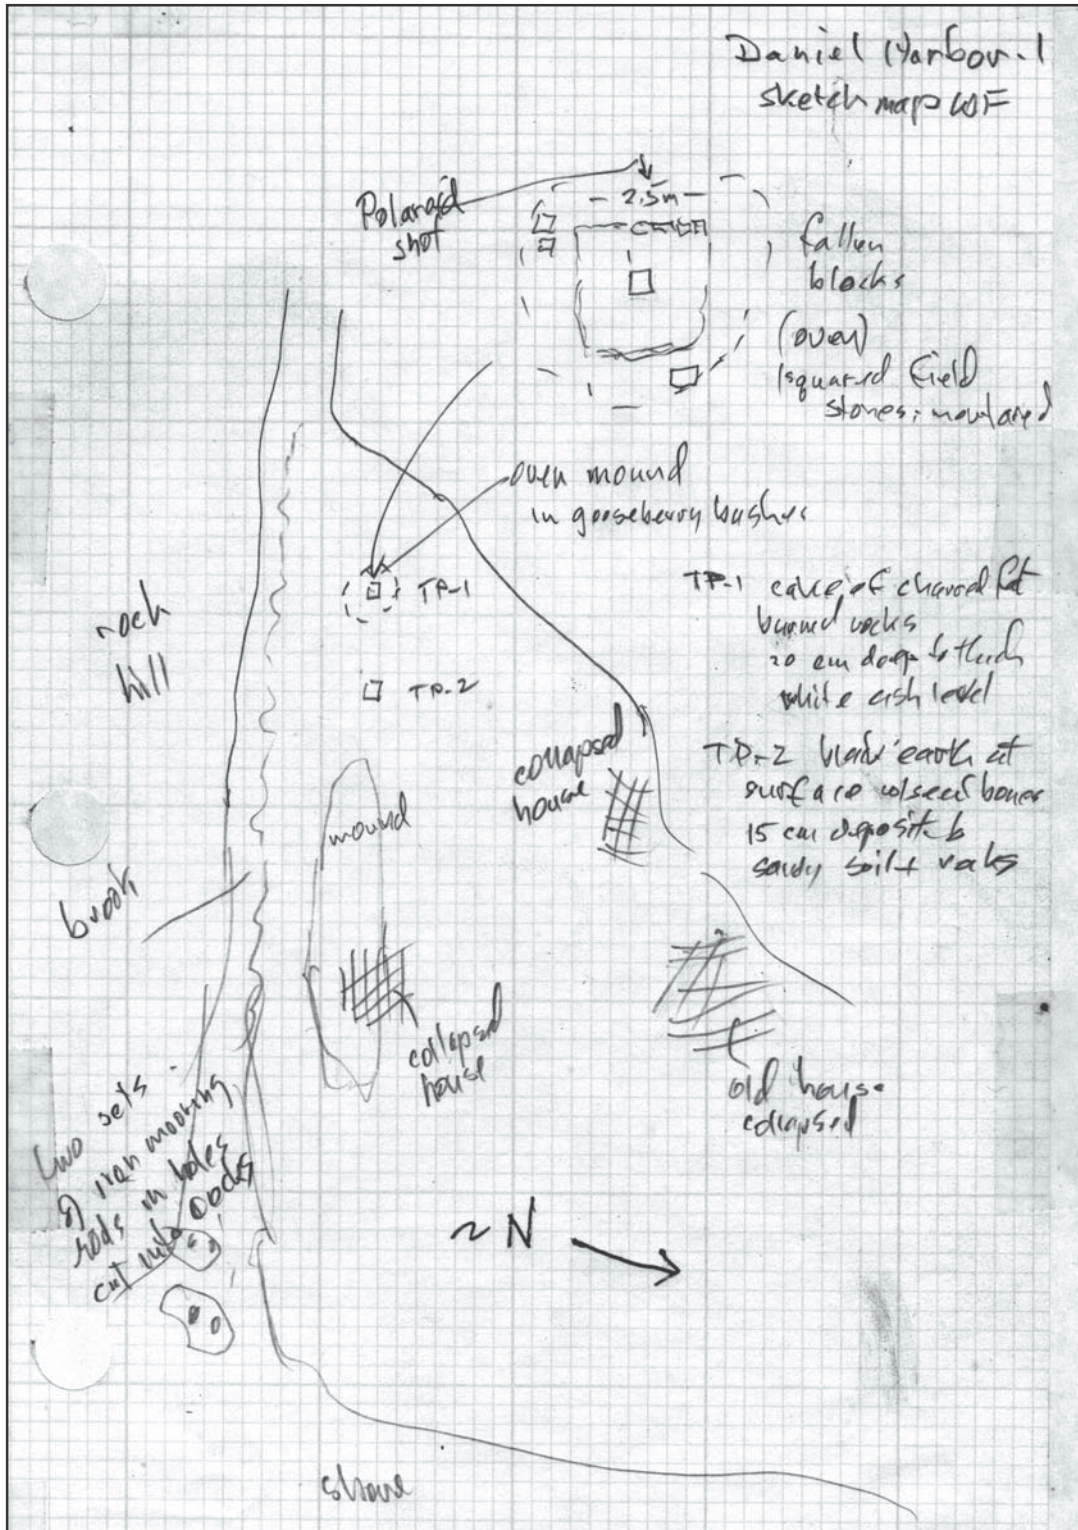 Daniel Harbor-1
sketch map WF
Polaroid
shot
2.5m
fallen
blocks
(oven)
squared field
stones; mortared
oven mound
in gooseberry bushes
TP-1
TP-2
rock
hill
TP-1 cake of charred fat
burned rocks
20 cm deep to thick
white ash level
TP-2 black earth at
surface w/seal bones
15 cm deposit to
sandy soil + rocks
collapsed
house
mound
brook
collapsed
house
old house
collapsed
two sets
of iron mooring
rods in holes
cut into rocks
~ N
shore